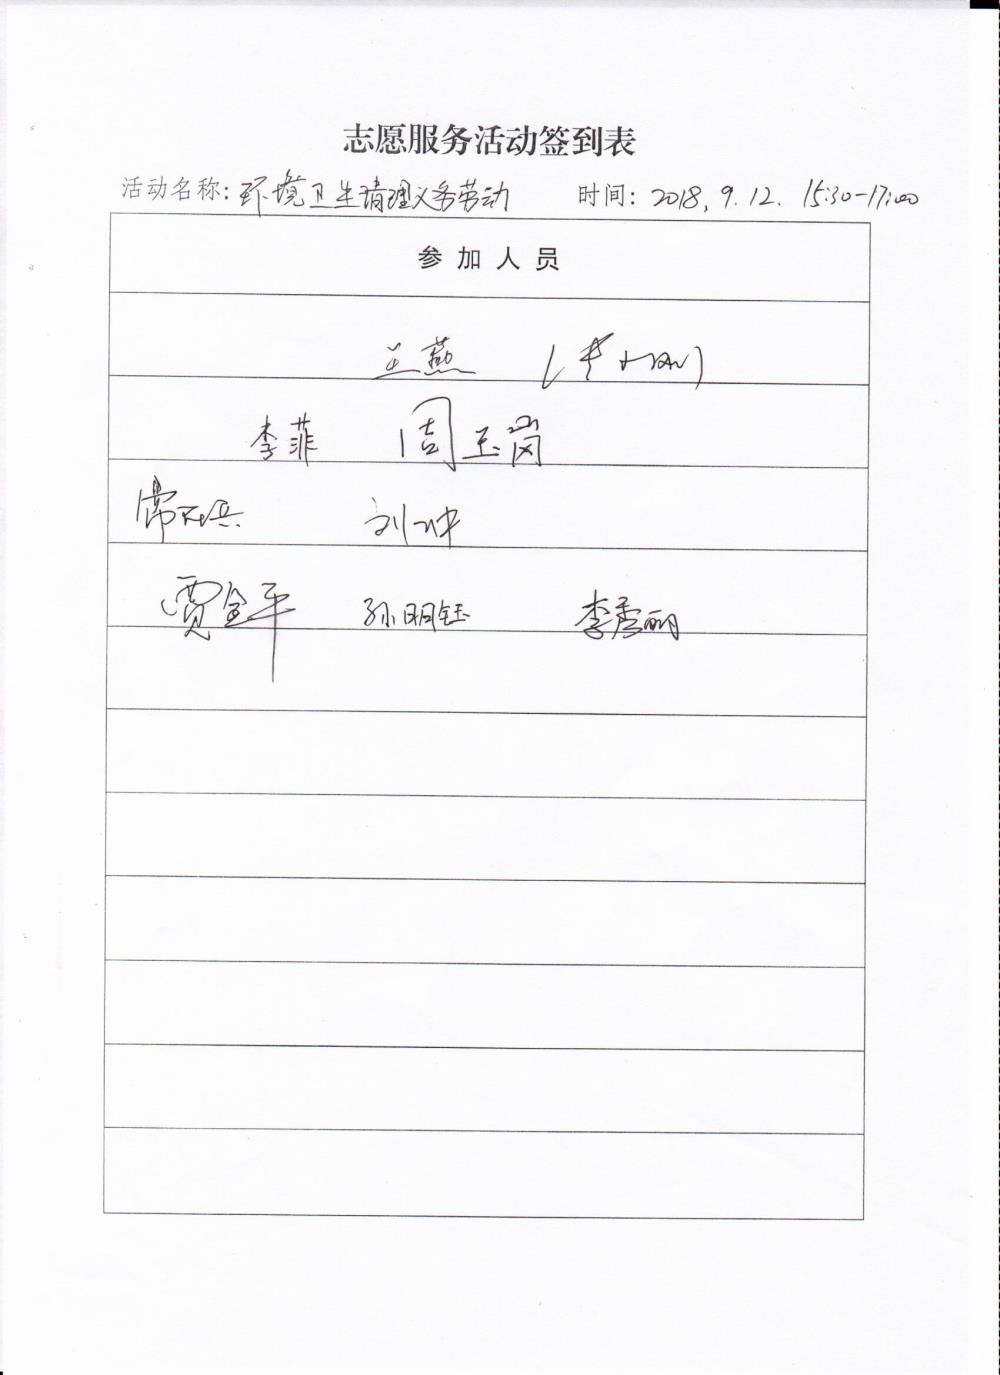 志愿服务活动签到表
活动名称：环境卫生清理义务劳动 时间：2018.9.12. 15:30-17:00
参加人员
王燕
李菲 周玉岗
常 刘冲
贾金平 孙明钰 李秀丽